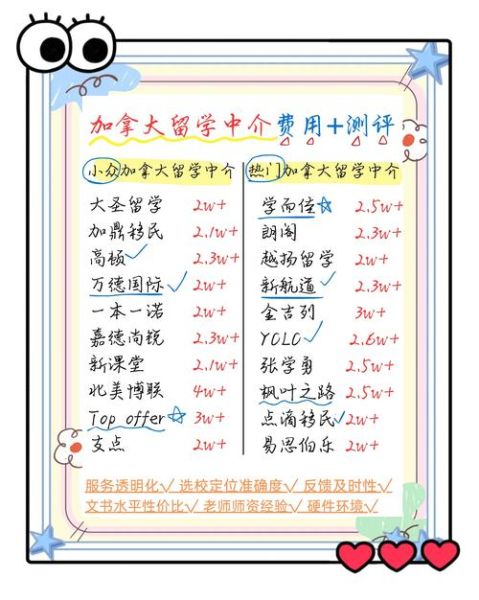 加拿大留学中介费用+测评
小众加拿大留学中介
大圣留学 2w+
加鼎移民 2.1w+
高顿✓ 2.3w+
万德国际✓ 2w+
一本一诺 2w+
嘉德尚锐 2.3w+
新课堂 2.1w+
北美博联 4w+
Top offer☆ 3w+
支点 2w+
热门加拿大留学中介
学而佳☆ 2.5w+
朗阁 2.3w+
越扬留学 2w+
新航道✓ 2.3w+
金吉列 3w+
YOLO✓ 2.6w+
张学勇 2.5w+
枫叶之路 2.5w+
点滴移民✓ 2w+
易思伯乐 2w+
服务透明化√ 选校定位准确度√ 反馈及时性√
文书水平性价比√ 老师师资经验√ 硬件环境√